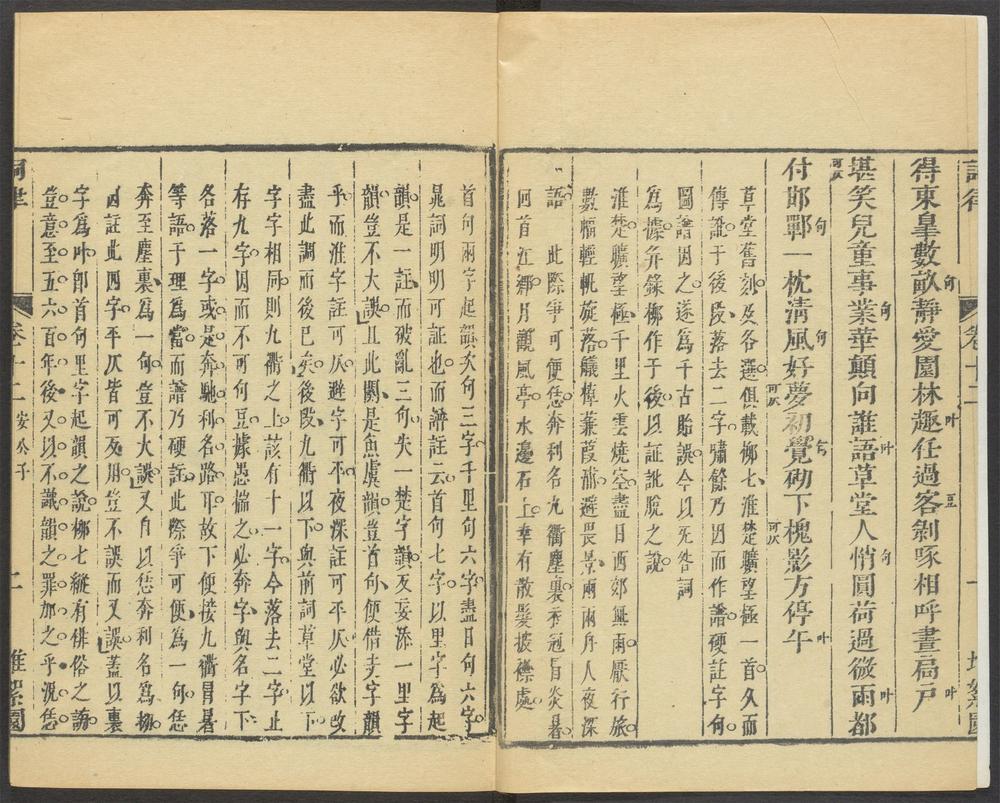 詞律 卷十二 十一 堆絮園
得東皇數畝靜愛園林趣任過客剝啄相呼晝扃戶
句 叶 豆 叶
堪笑兒童事業華顛向誰語草堂人悄圓荷過微雨都
可仄 句 叶 句 叶
付邯鄲一枕淸風好夢初覺砌下槐影方停午
句 句 可仄 句 可仄 叶
草堂舊刻及各選俱載柳七淮楚曠望極一首久而
傳訛于後段落去二字嘯餘乃因而作譜硬註字句
圖譜因之遂爲千古貽誤今以死咎詞
爲據弁錄柳作于後以証訛脫之說
淮楚曠望極千里火雲燒空盡日西郊無雨厭行旅
數幅輕帆旋落艤棹蒹葭浦避畏景兩兩舟人夜深
語 此際爭可便恁奔利名九衢塵裏衣冠冒炎暑
回首江鄉月觀風亭水邊石上幸有散髮披襟處
首句兩字起韻次句三字千里句六字盡日句六字
晁詞明明可証也而譜註云首句七字以里字爲起
韻是一註而破亂三句失一楚字韻反妄添一里字
韻豈不大誤且此闋是魚虞韻豈首句便借支字韻
乎而淮字註可仄避字可平夜深註可平仄必欲改
盡此調而後已矣後段九衢以下與前詞草堂以下
字字相同則九衢之上該有十一字今落去二字止
存九字因而不可句豆據愚揣之必奔字與名字下
各落一字或是奔馳利名路耳故下便接九衢冒暑
等語于理爲當而譜乃硬註此際爭可便爲一句恁
奔至塵裏爲一句豈不大誤又自以恁奔利名爲拗
而註此四字平仄皆可反用豈不誤而又誤蓋以裏
字爲叶卽首句里字起韻之說柳七縱有俳俗之誚
豈意至五六百年後又以不識韻之罪加之乎況恁
詞律 卷十二 安公子 二 堆絮園